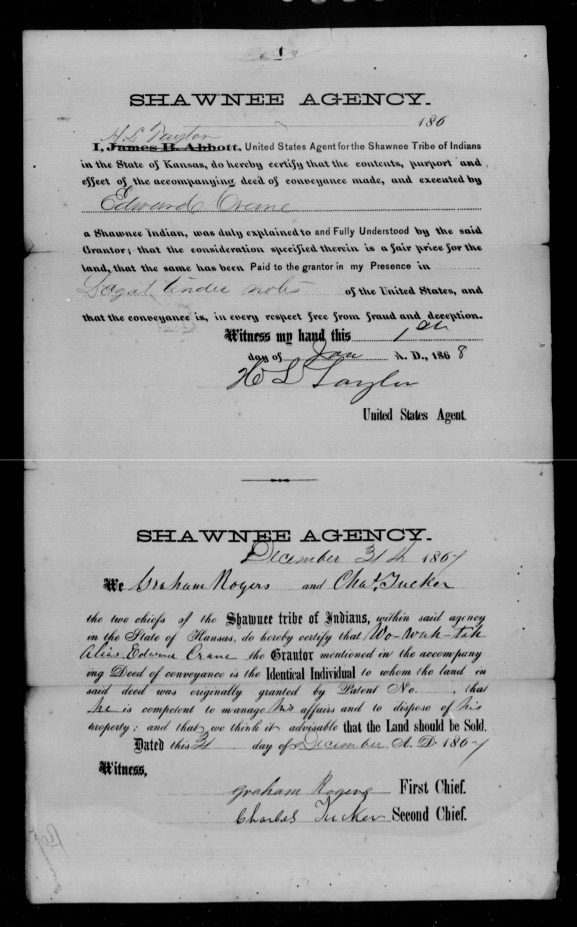 1
SHAWNEE AGENCY.
186
H L Taylor
I, James B. Abbott, United States Agent for the Shawnee Tribe of Indians
in the State of Kansas, do hereby certify that the contents, purport and
effect of the accompanying deed of conveyance made, and executed by
Edward Crane
a Shawnee Indian, was duly explained to and Fully Understood by the said
Grantor; that the consideration specified therein is a fair price for the
land, that the same has been Paid to the grantor in my Presence in
Legal tinder nots of the United States, and
that the conveyance is, in every respect free from fraud and deception.
Witness my hand this 1st
day of Jan A. D., 1868
H L Taylor
United States Agent.
SHAWNEE AGENCY.
December 31th 1867
We Graham Rogers and Chas. Tucker
the two chiefs of the Shawnee tribe of Indians, within said agency
in the State of Kansas, do hereby certify that Wo-wah-tah
alias Edwird Crane the Grantor mentioned in the accompany
ing Deed of conveyance is the Identical Individual to whom the land in
said deed was originally granted by Patent No. , that
he is competent to manage his affairs and to dispose of his
property; and that we think it advisable that the Land should be Sold.
Dated this 31 day of December A. D. 1867
Witness,
graham Rogers First Chief.
Charles Tucker Second Chief.